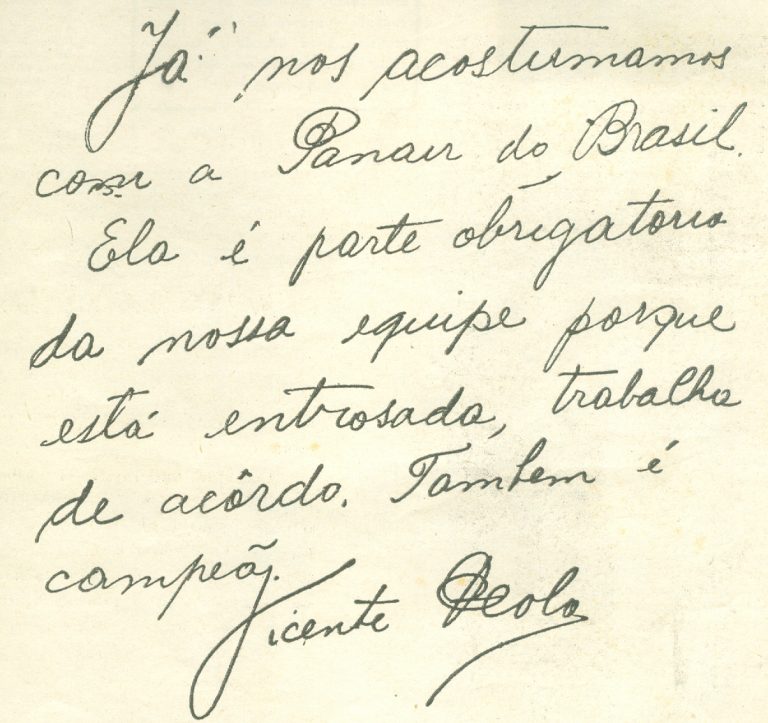 Já nos acostumamos
com a Panair do Brasil.
Ela é parte obrigatoria
da nossa equipe porque
está entrosada, trabalha
de acôrdo. Tambem é
campeã.
Vicente Feola